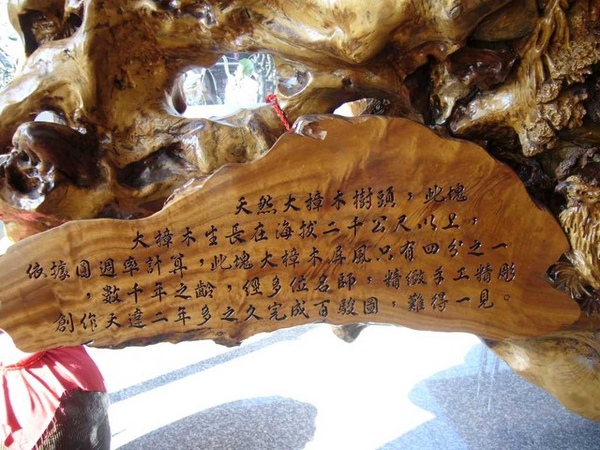 天然大樟木樹頭，此塊
大樟木生長在海拔二千公尺以上，
依據圓週率計算，此塊大樟木屏風只有四分之一
，數千年之齡，經多位名師，精緻手工精彫
創作天達二年多之久完成百駿圖，難得一見。